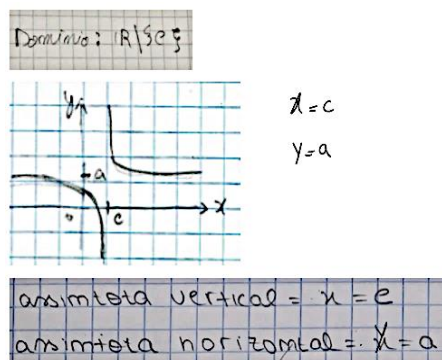 Dominio: R\{c}
y
x=c
a
y=a
o
c
x
assimtota vertical = x = c
assimtota horizontal = y = a